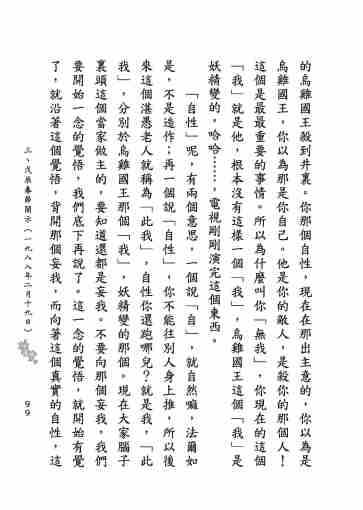 的烏雞國王殺到井裏。你那個自性，現在在那出主意的，你以為是
烏雞國王，你以為那是你自己。他是你的敵人，是殺你的那個人！
這個是最最重要的事情。所以為什麼叫你「無我」，你現在的這個
「我」就是他，根本沒有這樣一個「我」，烏雞國王這個「我」是
妖精變的，哈哈……，電視剛剛演完這個東西。
「自性」呢，有兩個意思，一個說「自」，就自然嘛，法爾如
是，不是造作；再一個說「自性」，你不能往別人身上推，所以後
來這個湛愚老人就稱為「此我」，自性你還跑哪兒？就是我，「此
我」，分別於烏雞國王那個「我」，妖精變的那個。現在大家腦子
裏頭這個當家做主的，要知道還都是妄我。不要向那個妄我，我們
要開始一念的覺悟，我們底下再說了。這一念的覺悟，就開始有覺
了，就沿著這個覺悟。背開那個妄我，而向著這個真實的自性，這
三、戊辰春節開示（一九八八年二月十九日）
99